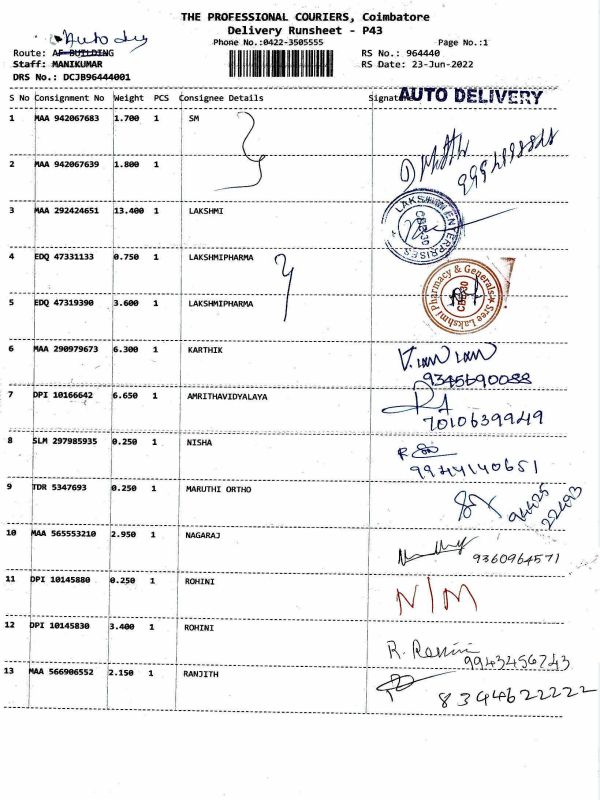 THE PROFESSIONAL COURIERS, Coimbatore
Delivery Runsheet - P43
Phone No.:0422-3505555 Page No.:1
Route: AF BUILDING RS No.: 964440
Staff: MANIKUMAR RS Date: 23-Jun-2022
DRS No.: DCJB96444001
S No Consignment No Weight PCS Consignee Details Signature AUTO DELIVERY
1 MAA 942067683 1.700 1 SM
2 MAA 942067639 1.800 1
3 MAA 292424651 13.400 1 LAKSHMI
LAKSHMI ENTERPRISES
4 EDQ 47331133 0.750 1 LAKSHMIPHARMA
Sree Lakshmi Pharmacy & Generals
5 EDQ 47319390 3.600 1 LAKSHMIPHARMA
6 MAA 290979673 6.300 1 KARTHIK
9345690088
7 DPI 10166642 6.650 1 AMRITHAVIDYALAYA
7010639949
8 SLM 297985935 0.250 1 NISHA
9944140651
9 TDR 5347693 0.250 1 MARUTHI ORTHO
94425
22493
10 MAA 565553210 2.950 1 NAGARAJ
9360964571
11 DPI 10145880 0.250 1 ROHINI
N/M
12 DPI 10145830 3.400 1 ROHINI
9943456743
13 MAA 566906552 2.150 1 RANJITH
8344622222